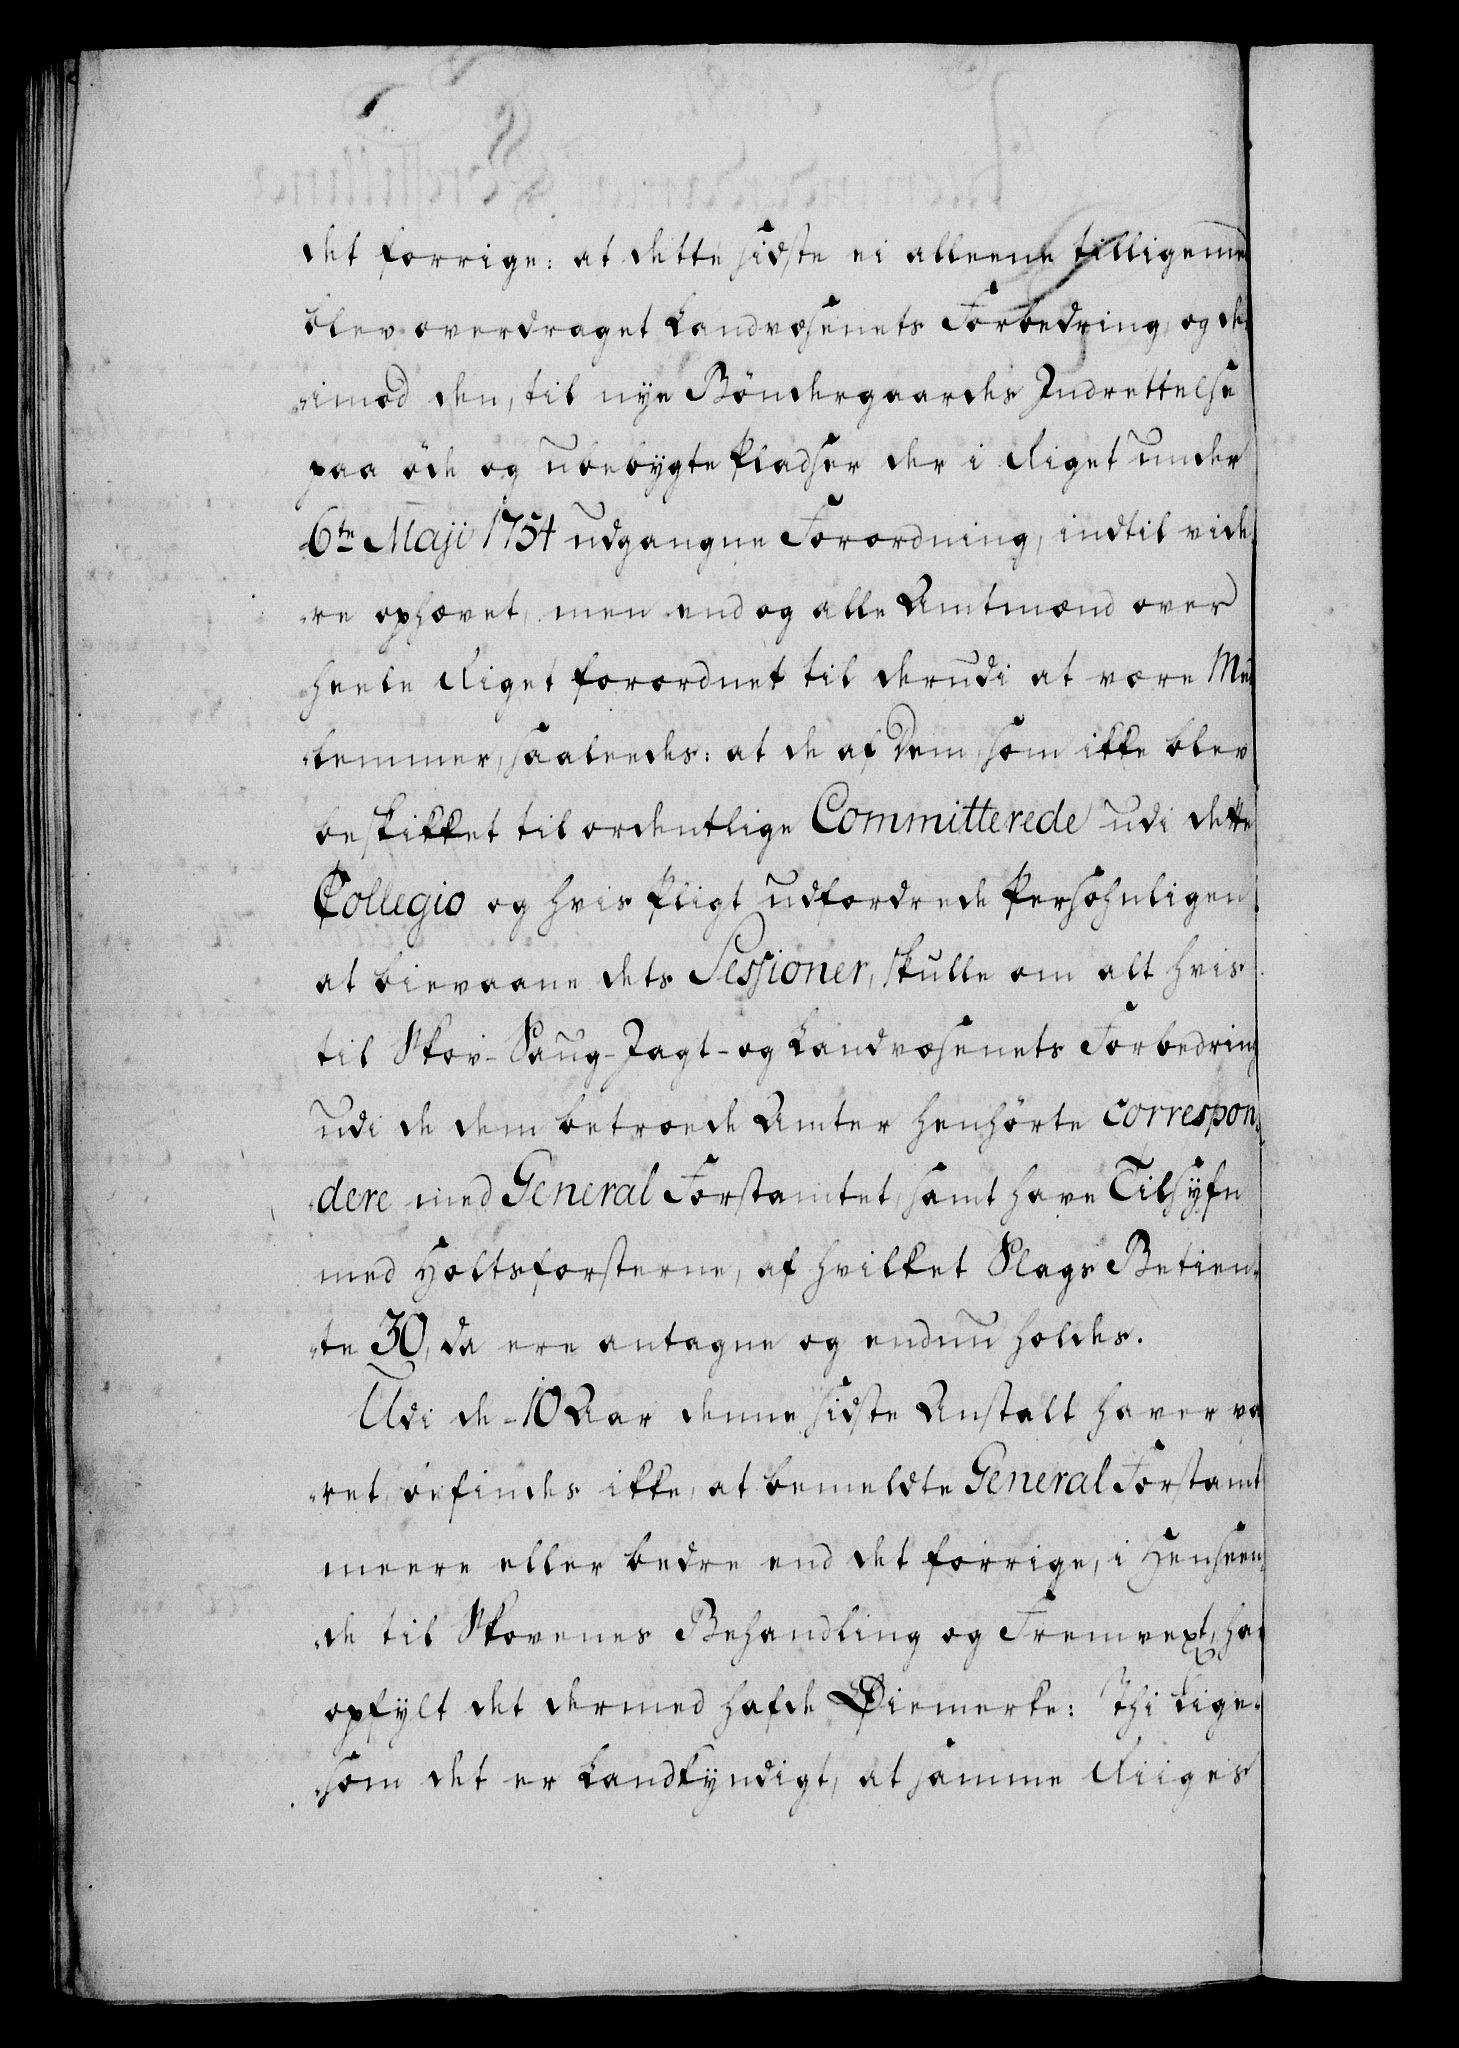 det forrige: at dette sidste ei alleene tilligemed
blev overdraget Landvæsenets Forbedring, og der-
„imod den, til nye Böndergaardes Indrettelse
paa öde og ubebygte Pladser der i Riget under
6te Maji 1754 udgangne Forordning, indtil vide-
„re ophævet, men endog alle Amtmænd over
heele Riget forordnet til derudi at være Med-
„lemmer, saaledes: at de af Dem, som ikke blev
beskikket til ordentlige Committerede udi dette
Collegio og hvis Pligt udfordrede Persohnligen
at bievaane dets Sessioner, skulle om alt hvis
til Skov- Saug- Jagt- og Landvæsenets Forbedring
udi de dem betroede Amter henhörte correspon-
„dere med General Forstamtet, samt have Tilsyfn
med Holtsforsterne, af hvilket Slags Betien-
„te 30, da ere antagne og endnu holdes.
Udi de 10 Aar denne sidste Anstalt haver væ
„ret, befindes ikke, at bemeldte General Forstamt
meere eller bedre end det forrige, i Henseen-
„de til Skovenes Behandling og Fremvext, har
opfylt det dermed hafde Øiemerke: Thi lige-
„som det er Landkyndigt, at samme Riiges